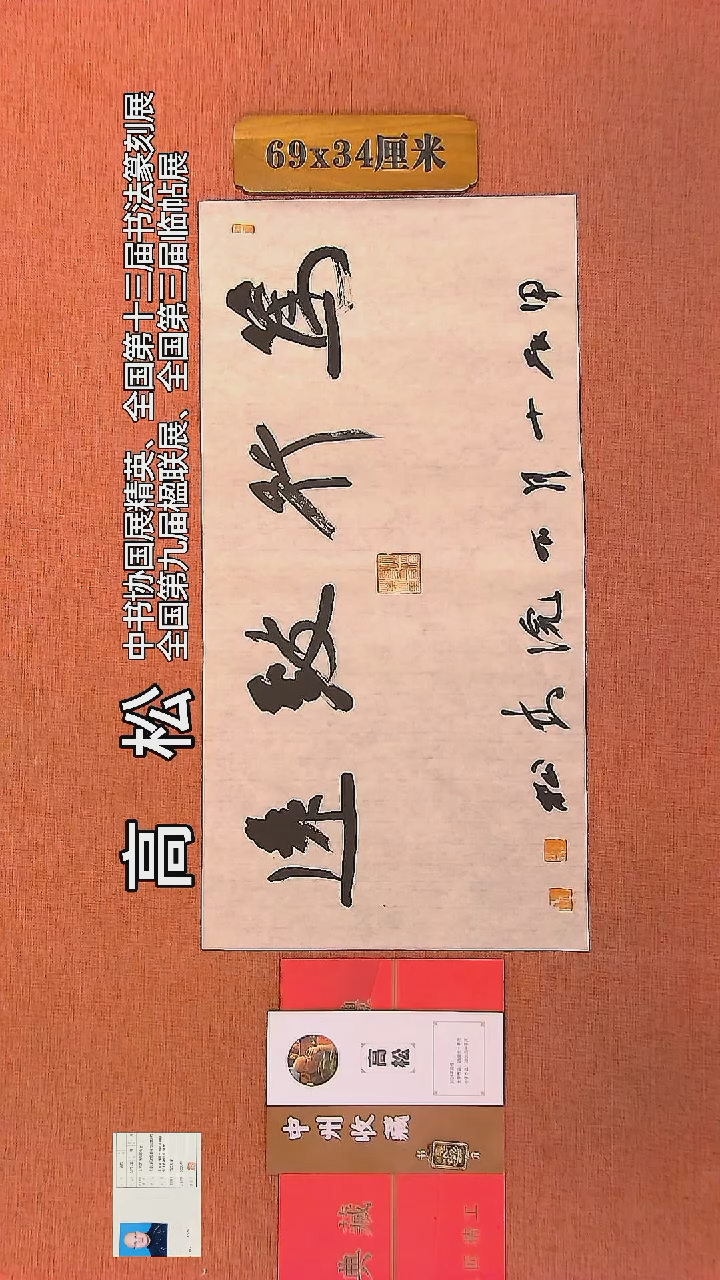 69x34厘米
高 松
中书协国展精英、全国第十三届书法篆刻展
全国第九届楹联展、全国第三届临帖展
篤行致遠
甲辰十月
高松
中州收藏
典藏